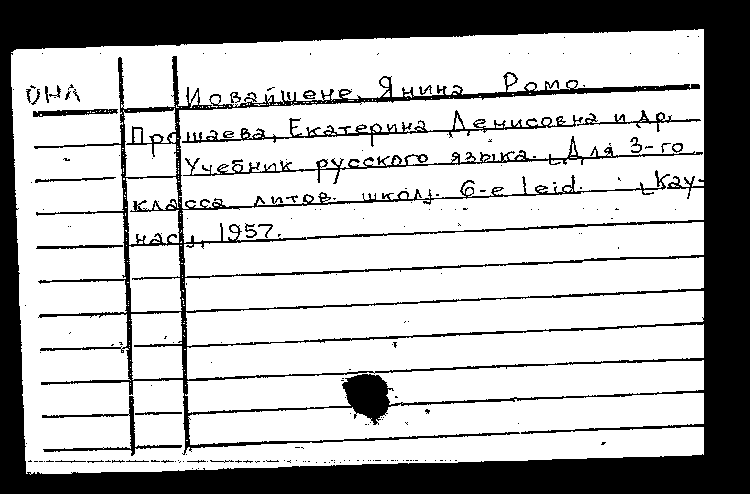 ОНЛ Иовайшене, Янина Ромо.
Прошаева, Екатерина Денисовна и др.
Учебник русского языка. [Для 3-го
класса литов. школ]. 6-е leid. [Кау-
нас], 1957.